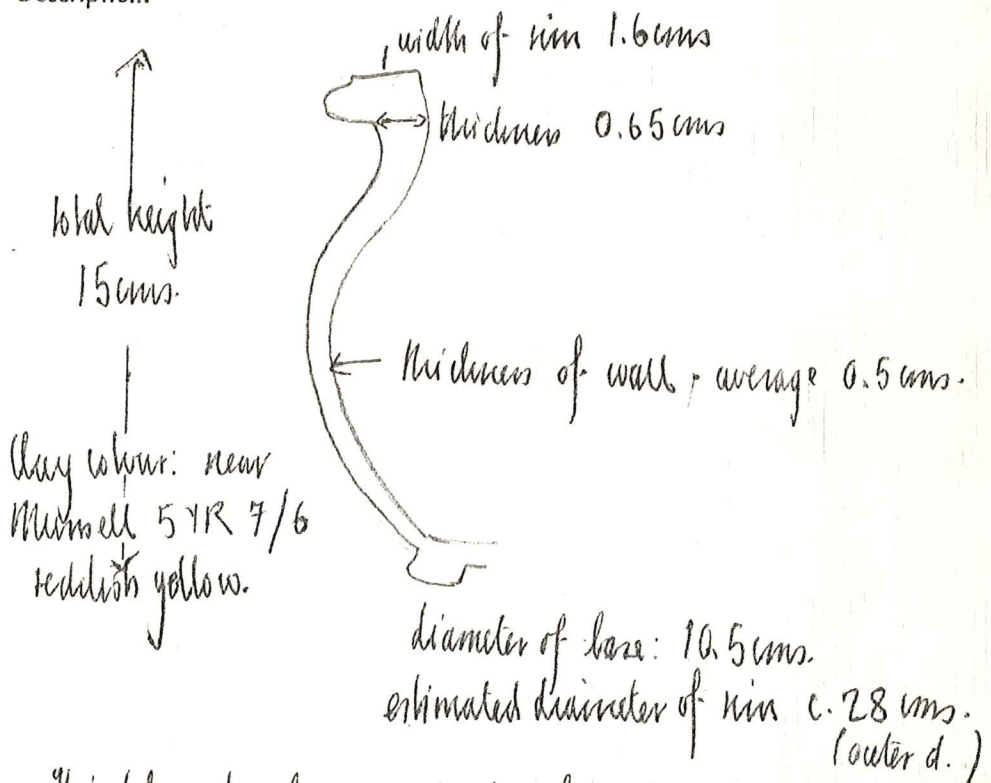 Description:
width of rim 1.6cms
thickness 0.65cms
total height
15cms.
thickness of wall, average 0.5cms.
Clay colour: near
Munsell 5YR 7/6
reddish yellow.
diameter of base: 10.5cms.
estimated diameter of rim c. 28 cms.
(outer d.)